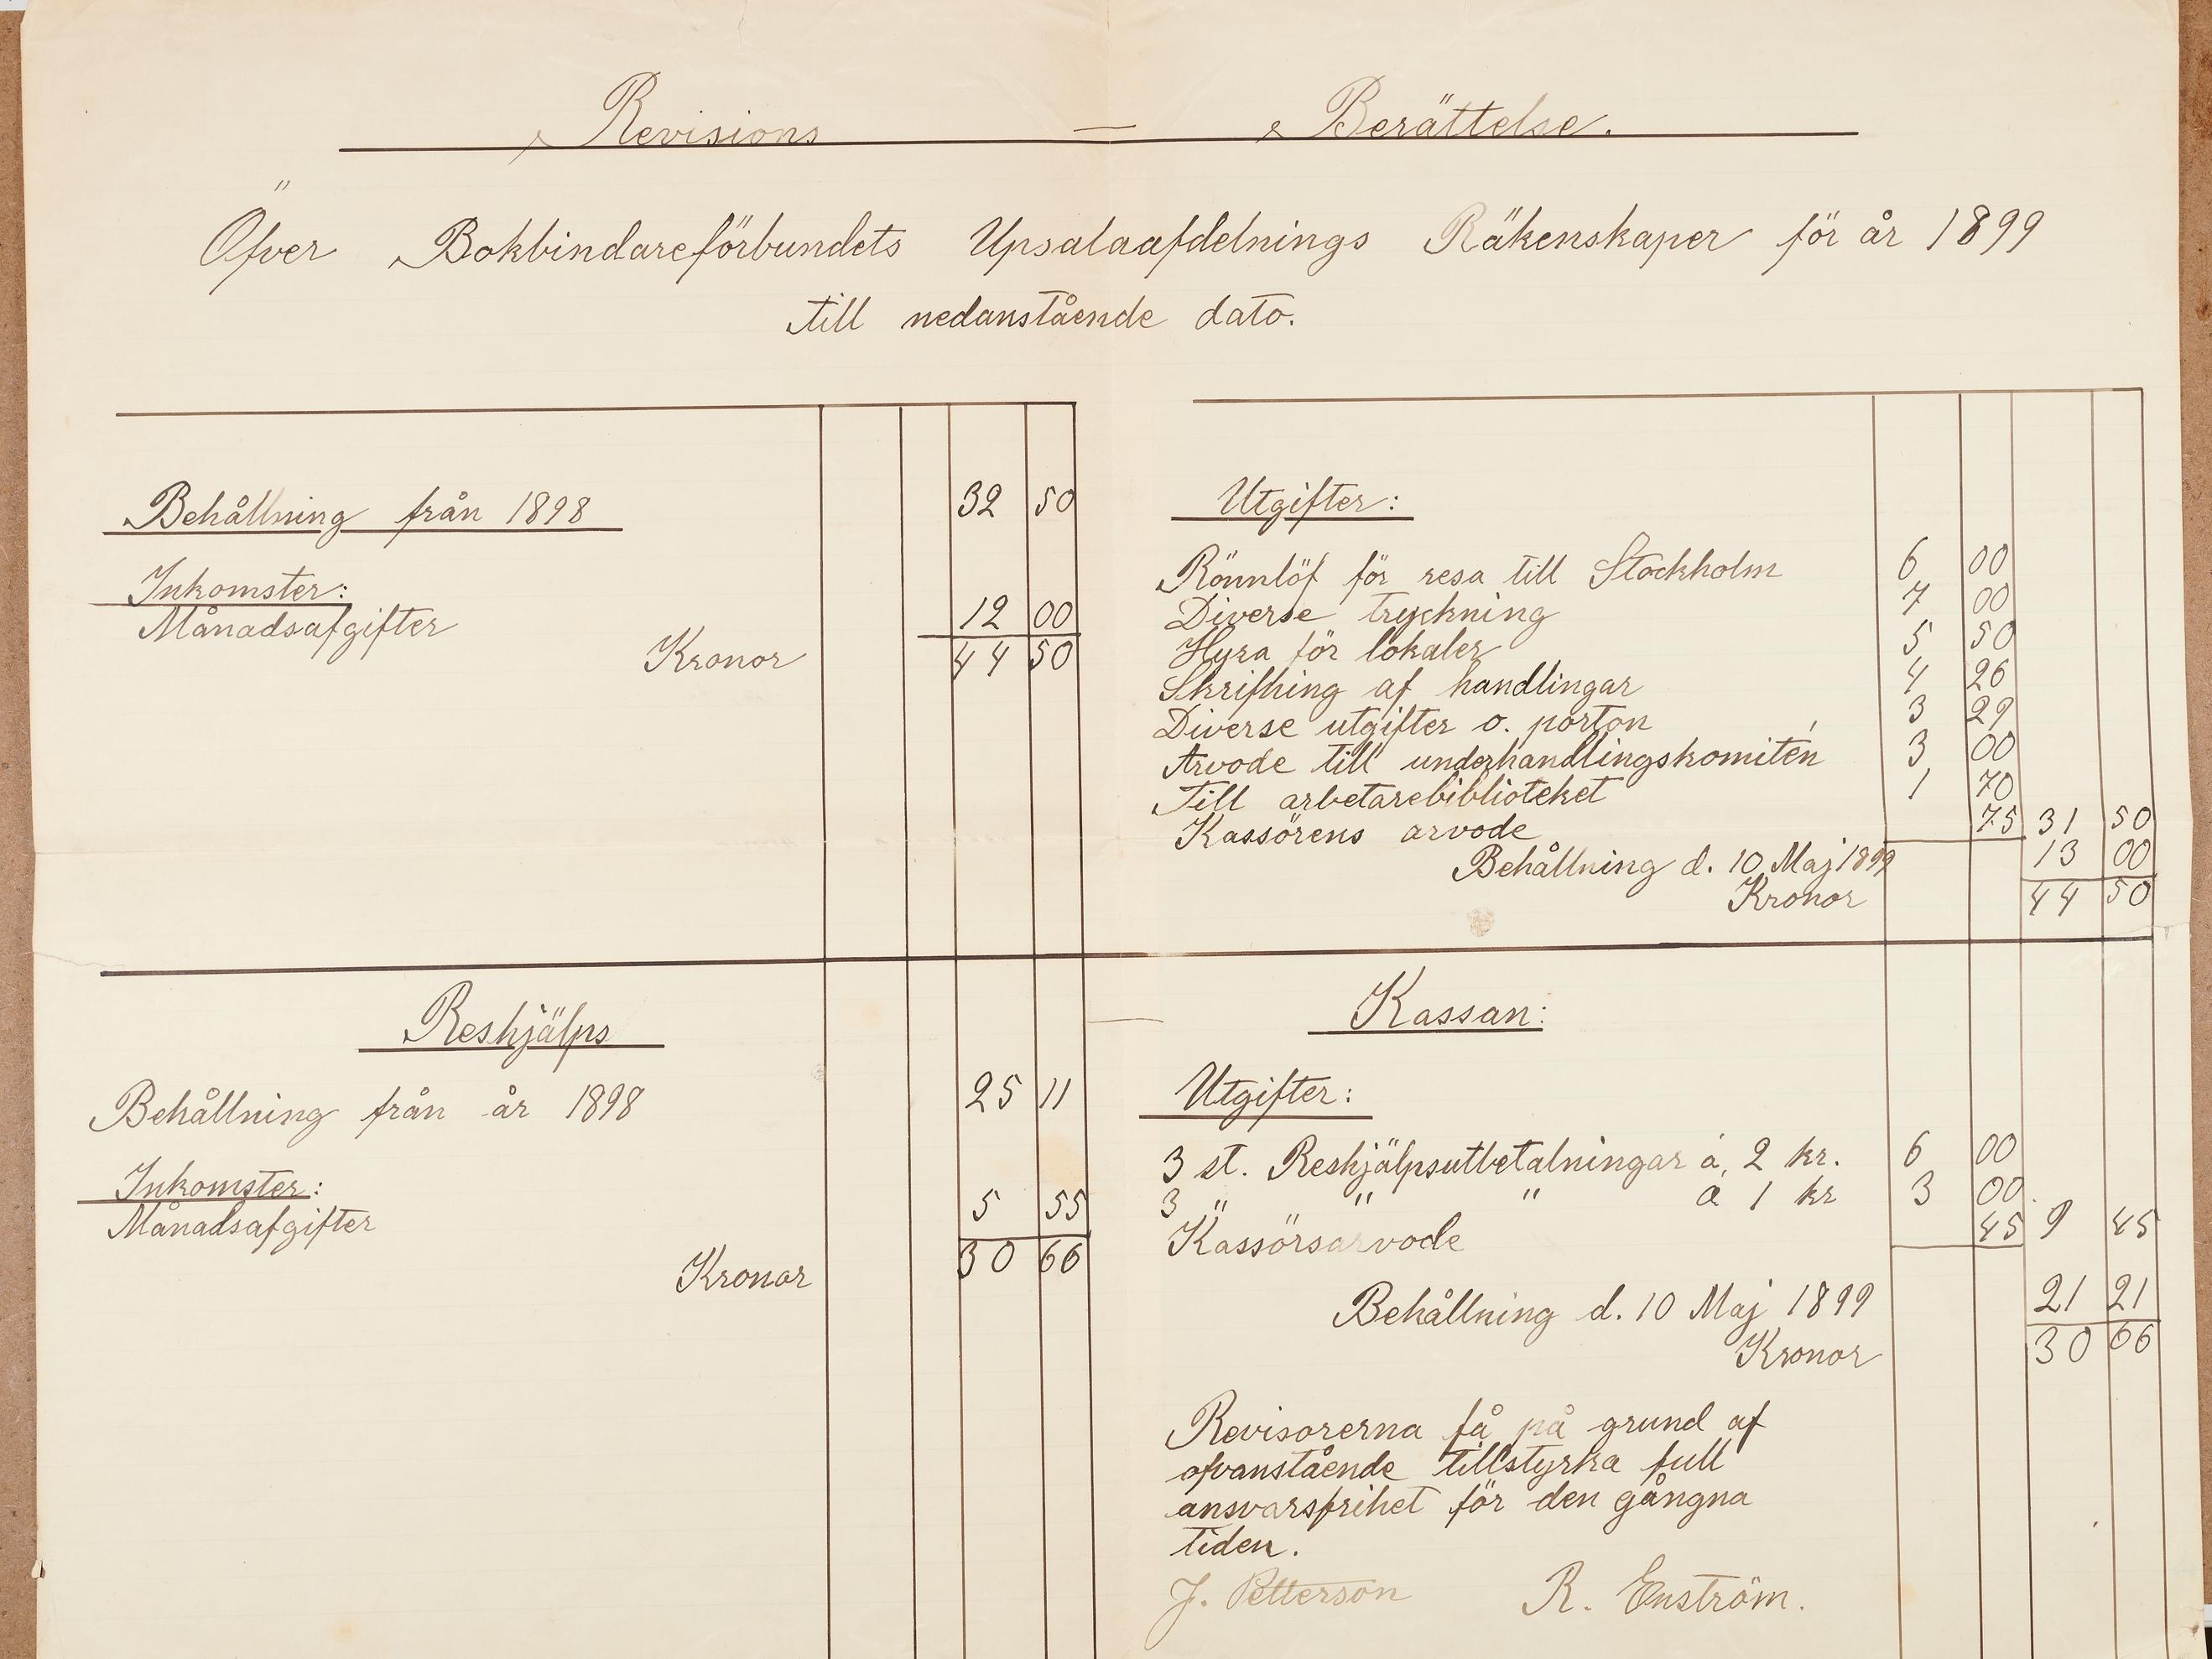 Revisions — Berättelse.
Öfver Bokbindareförbundets Upsalaafdelnings Räkenskaper för år 1899
till nedanstående dato.
Behållning från 1898 32 50
Inkomster:
Månadsafgifter 12 00
Kronor 44 50
Utgifter:
Rönnlöf för resa till Stockholm 6 00
Diverse tryckning 7 00
Hyra för lokaler 5 50
Skrifning af handlingar 4 26
Diverse utgifter o. porton 3 29
Arvode till underhandlingskomitén 3 00
Till arbetarebiblioteket 1 70
Kassörens arvode 75 31 50
Behållning d. 10 Maj 1899 13 00
Kronor 44 50
Reshjälps — Kassan:
Behållning från år 1898 25 11
Inkomster:
Månadsafgifter 5 55
Kronor 30 66
Utgifter:
3 st. Reshjälpsutbetalningar á 2 kr. 6 00
3 " " " á 1 kr 3 00
Kassörsarvode 45 9 45
Behållning d. 10 Maj 1899 21 21
Kronor 30 66
Revisorerna få på grund af
ofvanstående tillstyrka full
ansvarsfrihet för den gångna
tiden.
J. Petterson R. Enström.